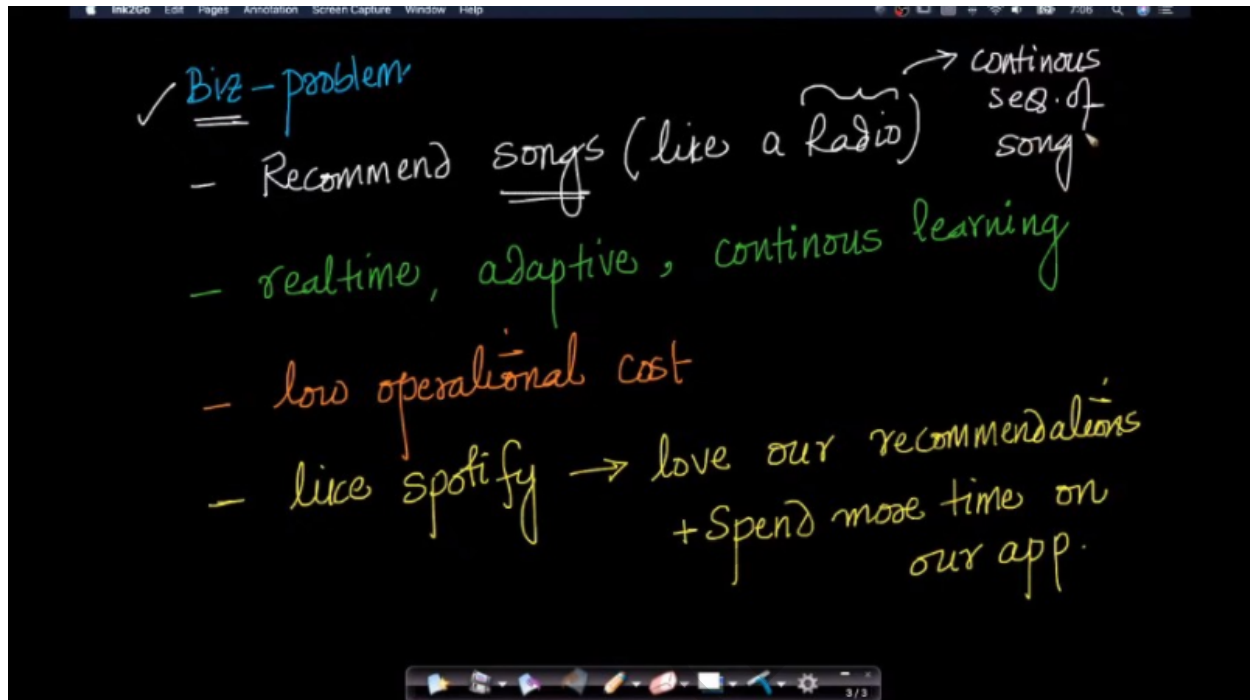 Ink2Go Edit Pages Annotation Screen Capture Window Help 7:06
✓ Biz - problem
- Recommend songs (like a Radio) → continous
seq. of
song
- realtime, adaptive, continous learning
- low operational cost
- like spotify → love our recommendations
+ Spend more time on
our app.
3/3